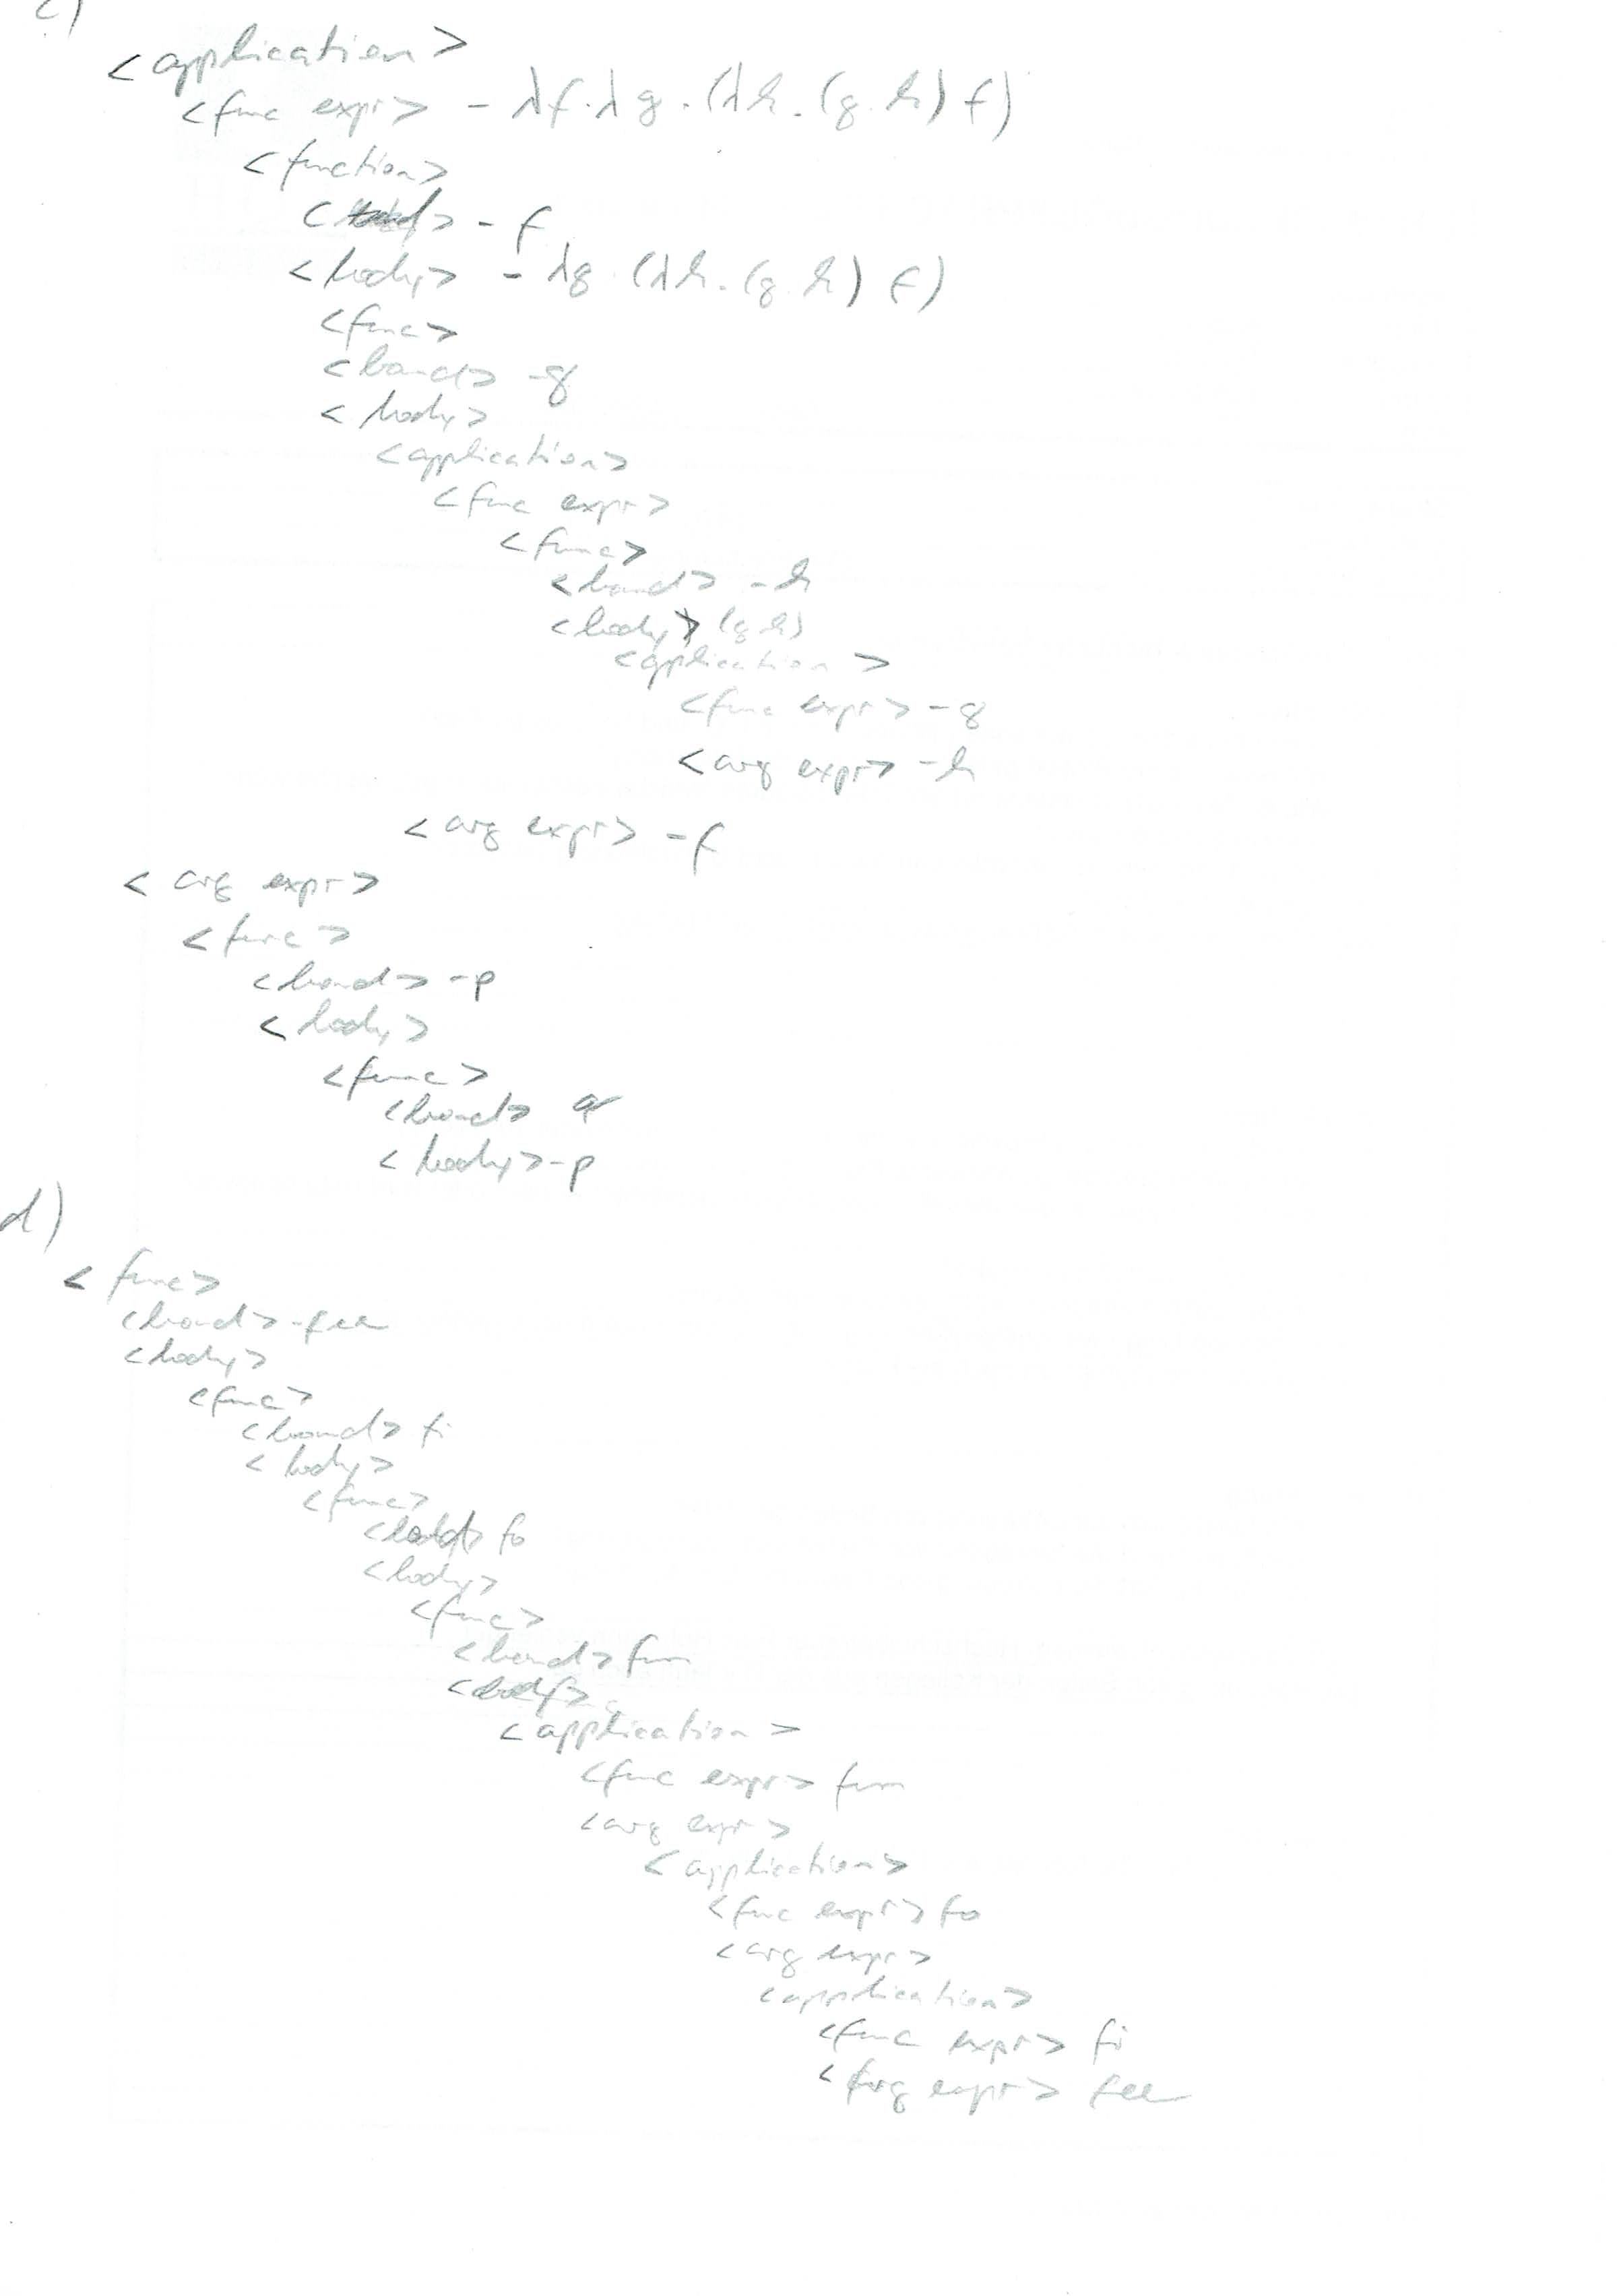 c)
<application>
<func expr> - λf.λg.(λh.(g h) f)
<function>
<bound> - f
<body> - λg.(λh.(g h) f)
<func>
<bound> - g
<body>
<application>
<func expr>
<func>
<bound> - h
<body> (g h)
<application>
<func expr> - g
<arg expr> - h
<arg expr> - f
<arg expr>
<func>
<bound> - p
<body>
<func>
<bound> q
<body> - p
d)
<func>
<bound> - fee
<body>
<func>
<bound> fi
<body>
<func>
<bound> fo
<body>
<func>
<bound> fum
<body>
<application>
<func expr> fum
<arg expr>
<application>
<func expr> fo
<arg expr>
<application>
<func expr> fi
<arg expr> fee